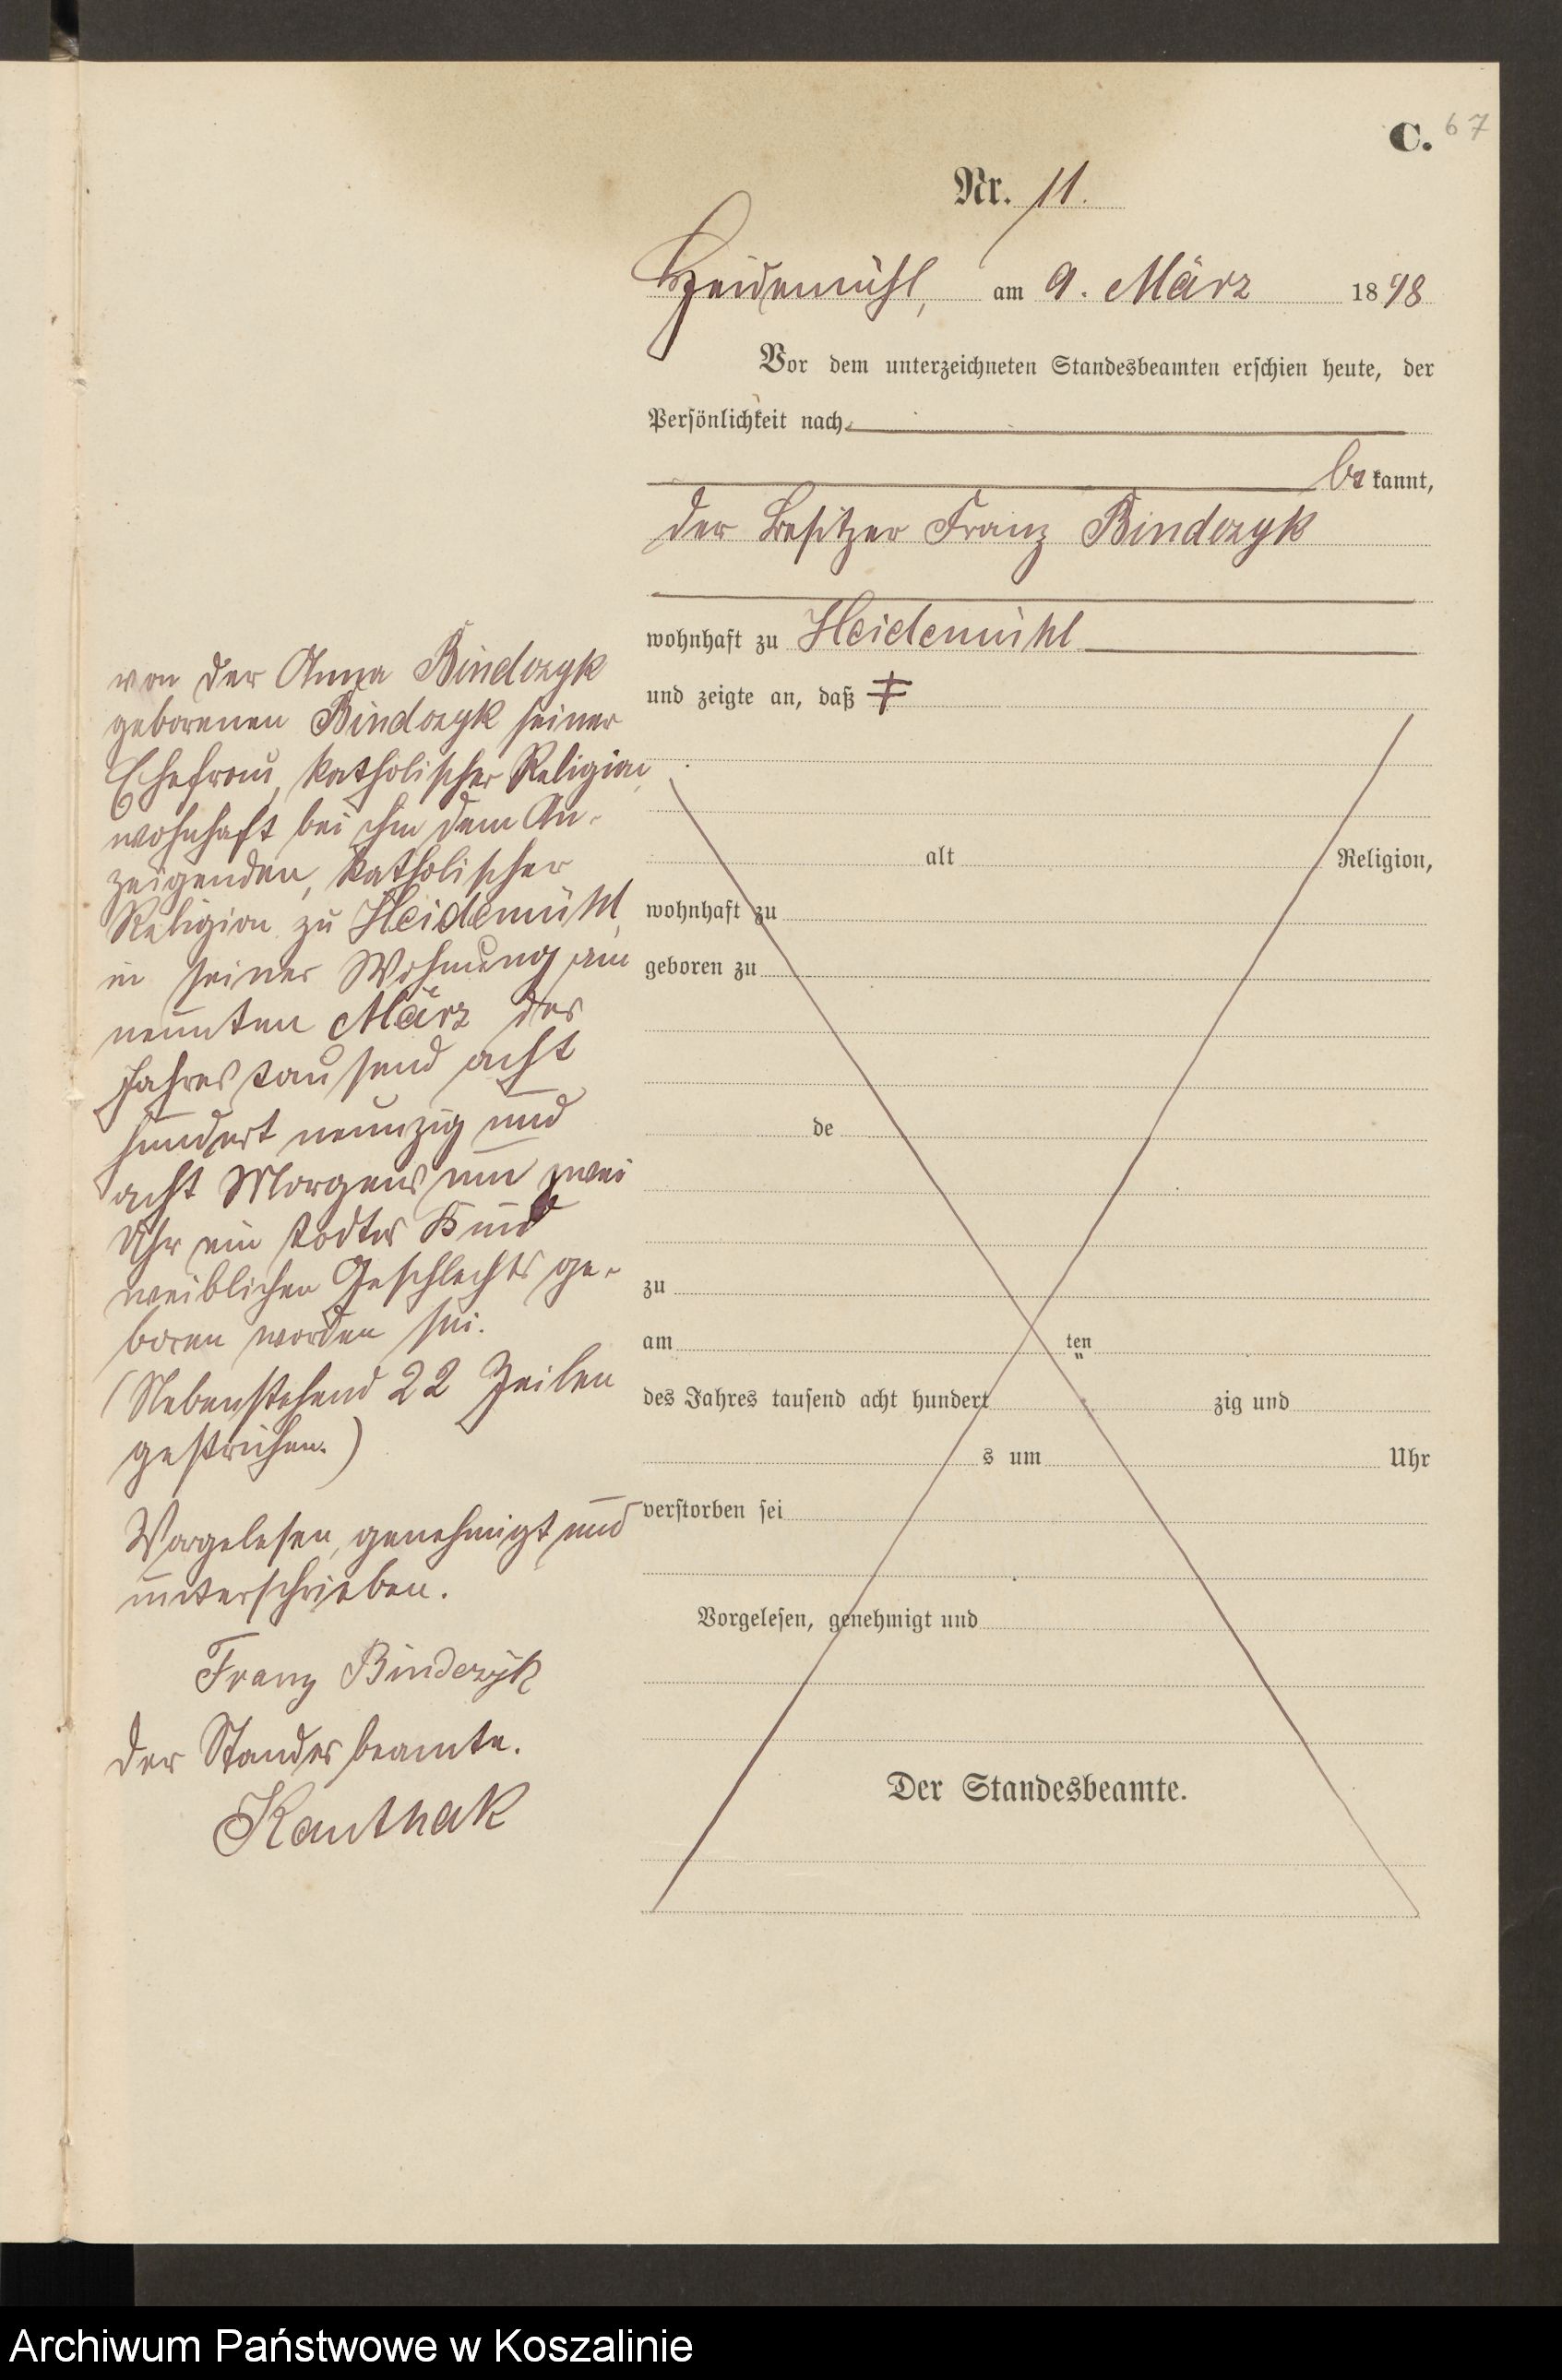 C. 67
Nr. 11.
Heidemühl, am 9. März 1898
Vor dem unterzeichneten Standesbeamten erschien heute, der
Persönlichkeit nach
bekannt,
der Besitzer Franz Bindczyk
wohnhaft zu Heidemühl
und zeigte an, daß ǂ
von der Anna Bindczyk
geborenen Bindczyk seiner
Ehefrau, katholischer Religion,
wohnhaft bei ihm dem An-
zeigenden, katholischer
Religion zu Heidemühl,
in seiner Wohnung am
neunten März des
Jahres tausend acht
hundert neunzig und
acht Morgens um zwei
Uhr ein todtes Kind
weiblichen Geschlechts ge-
boren worden sei.
(Nebenstehend 22 Zeilen
gestrichen.)
Vorgelesen, genehmigt und
unterschrieben.
Franz Bindczyk
Der Standesbeamte.
Kanthak
alt Religion,
wohnhaft zu
geboren zu
de
zu
am ten
des Jahres tausend acht hundert zig und
s um Uhr
verstorben sei
Vorgelesen, genehmigt und
Der Standesbeamte.
Archiwum Państwowe w Koszalinie